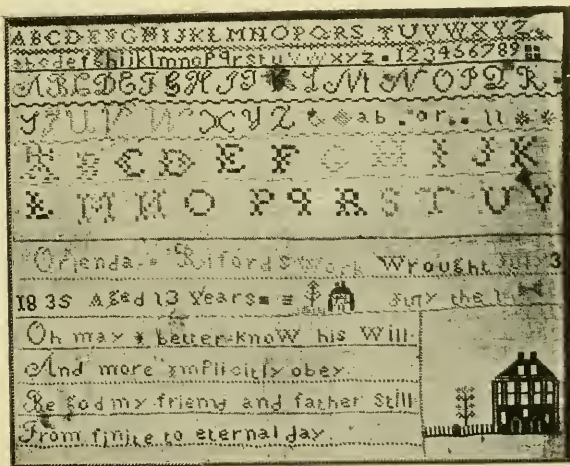 ABCDEFGHIJKLMNOPQRS TUVWXYZ
abcdefghijklmnopqrstuvwxyz 123466789
ABCDEFGHIJKLMNOPQR
STUVWXYZ & ab or ll
ABCDEFGHIJK
LMNOPQRSTUV
Orlenda Work Wrought July 3
1835 Aged 13 Years July the
Oh may I better know his Will
And more implicitly obey
Be god my friend and father Still
From finite to eternal day